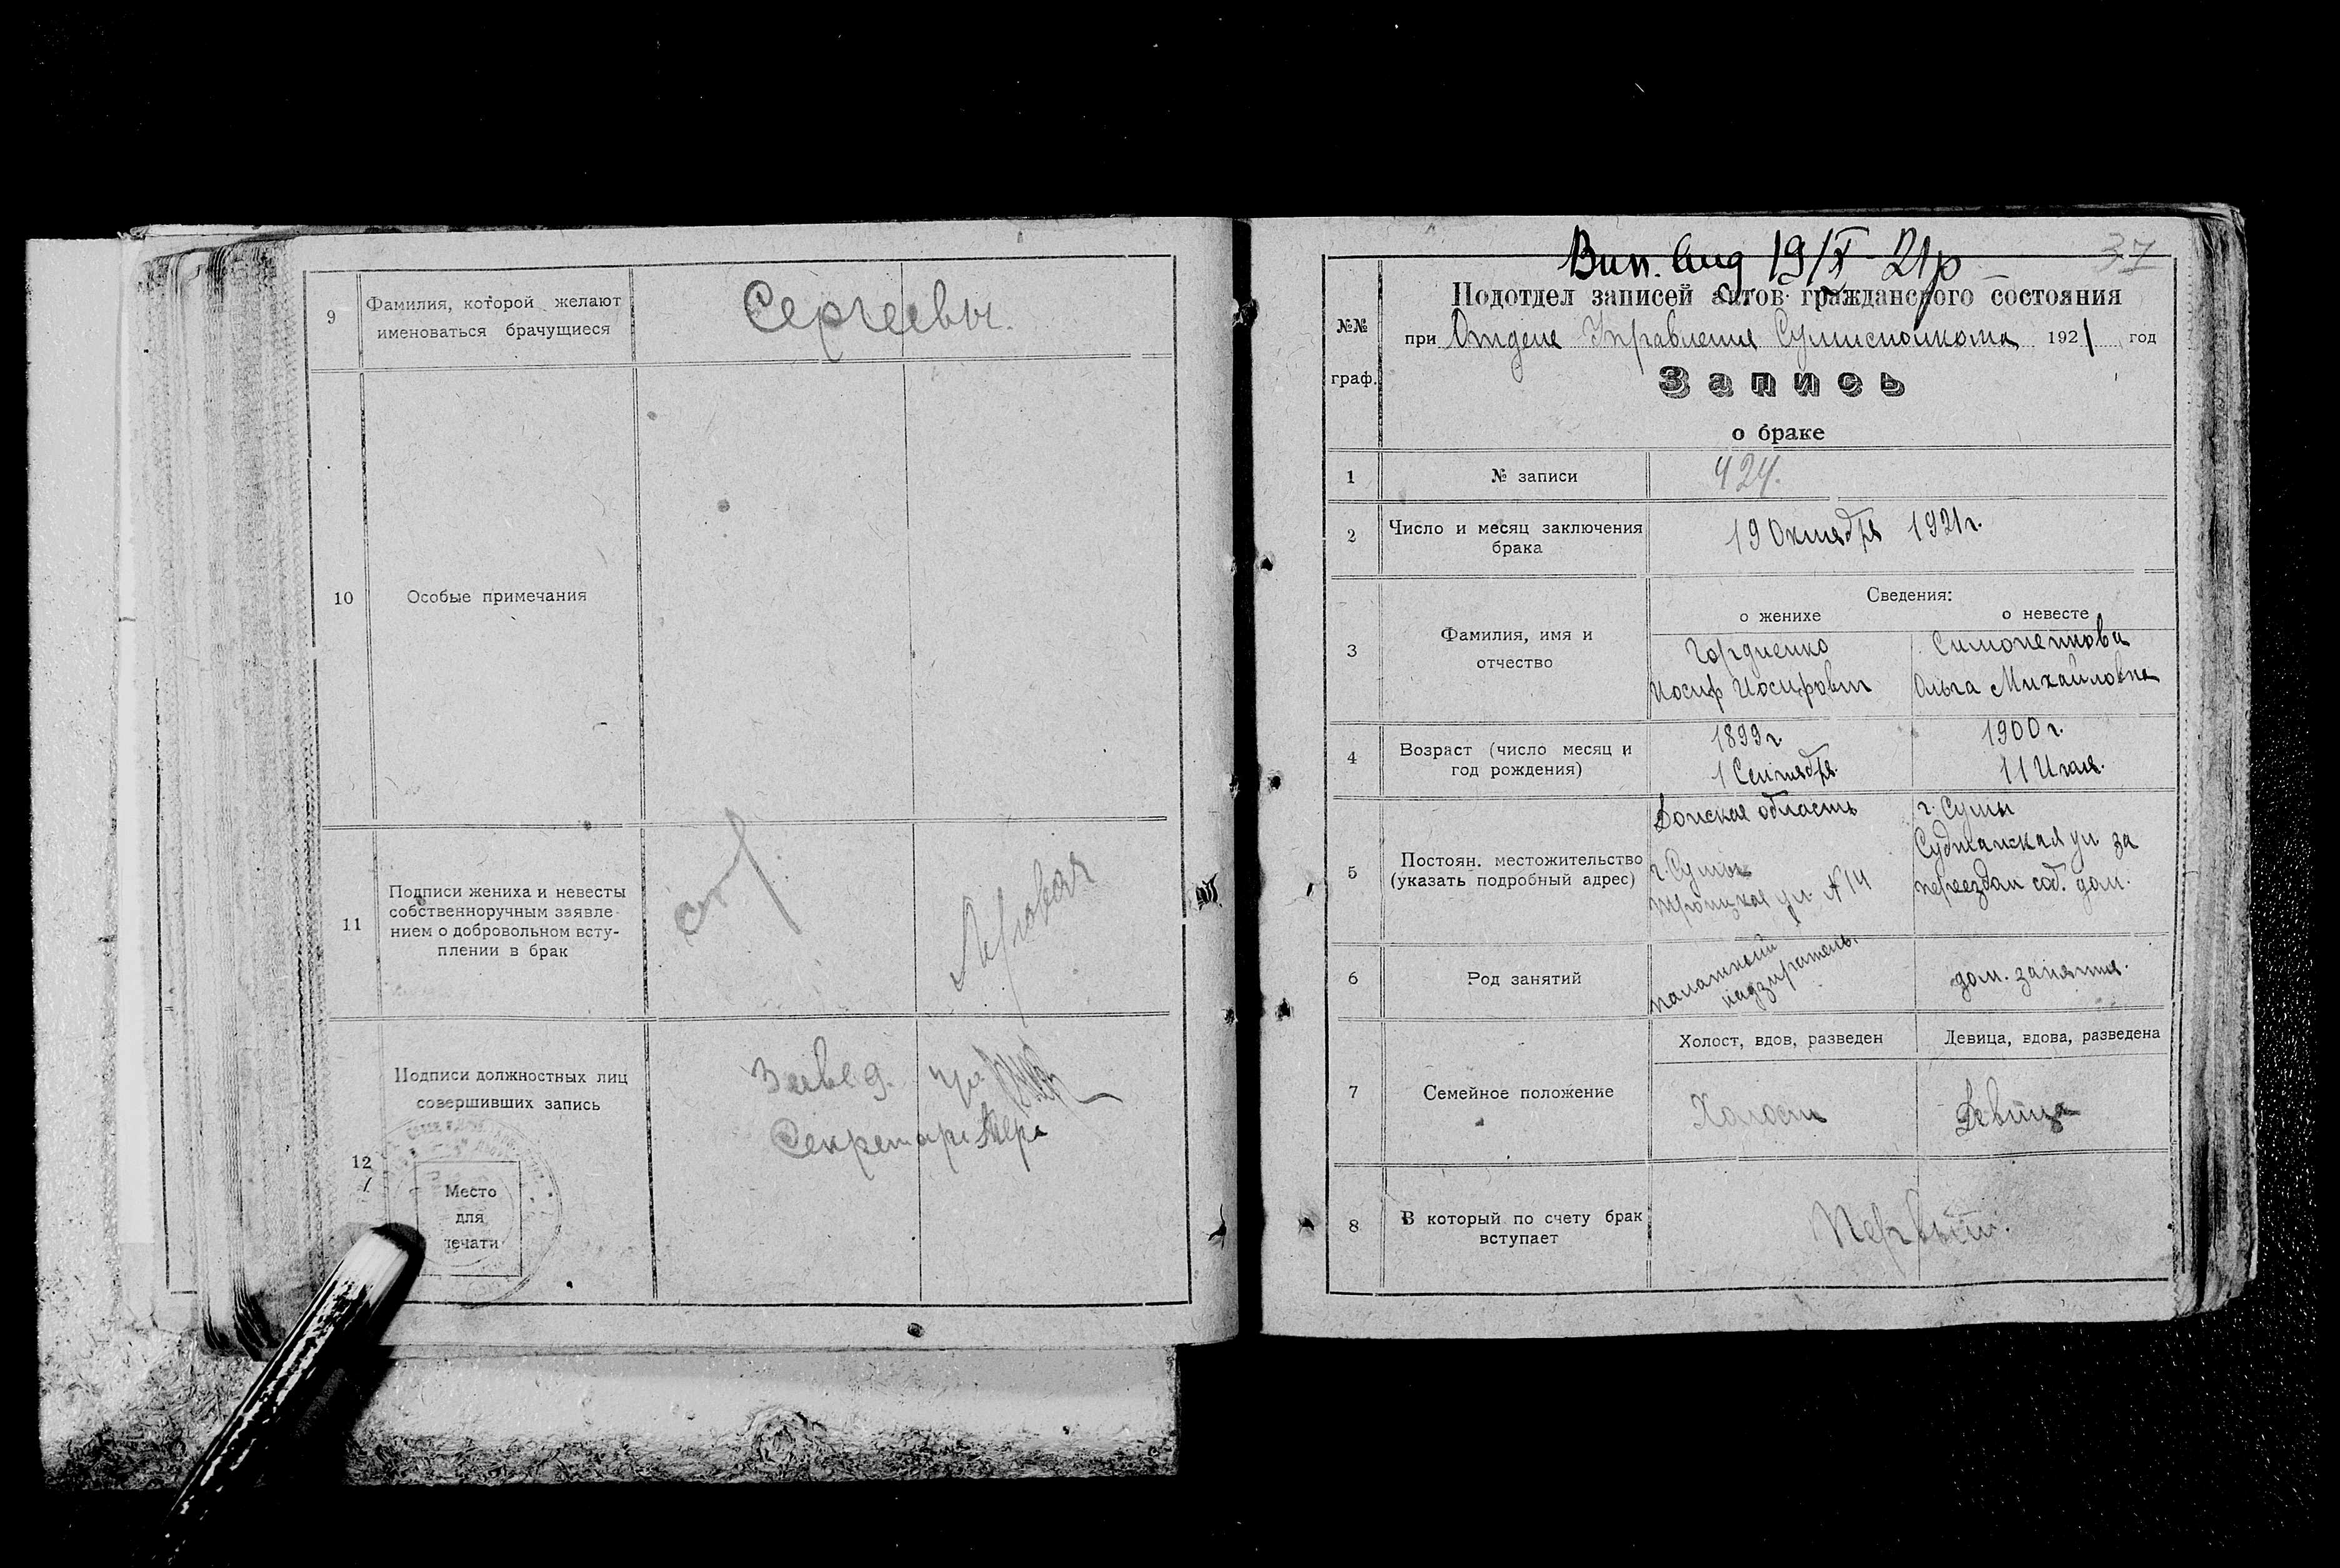 9
Фамилия, которой желают
именоваться брачущиеся
Сергеевы.
10
Особые примечания
11
Подписи жениха и невесты
собственноручным заявле-
нием о добровольном всту-
плении в брак
12
Подписи должностных лиц
совершивших запись
Завед.
Секретарь
Место
для
печати
Вип. 19/X 21р
37
№№
граф.
Подотдел записей актов гражданского состояния
при Отделе Управления Сумисполкома 1921 год
Запись
о браке
1
№ записи
424.
2
Число и месяц заключения
брака
19 Октября 1921 г.
Сведения:
о женихе
о невесте
3
Фамилия, имя и
отчество
Гордиенко
Иосиф Иосифович
Симоненкова
Ольга Михайловна
4
Возраст (число месяц и
год рождения)
1899 г.
1 Сентября
1900 г.
11 Июля.
5
Постоян. местожительство
(указать подробный адрес)
Донская область
г. Сумы
Троицкая ул. № 14
г. Сумы
Суджанская ул за
переездом соб. дом.
6
Род занятий
палатный
надзиратель.
дом. занятия.
7
Семейное положение
Холост, вдов, разведен
Девица, вдова, разведена
Холост
Девица
8
В который по счету брак
вступает
Первый.